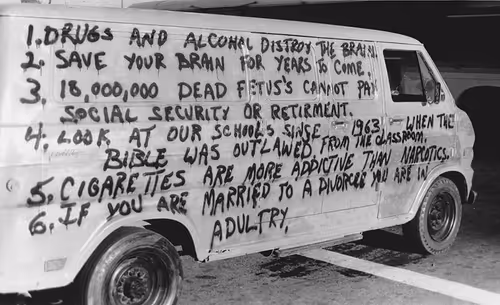 1. DRUGS AND ALCOHAL DISTROY THE BRAIN.
2. SAVE YOUR BRAIN FOR YEARS TO COME.
3. 18,000,000 DEAD FETUS'S CANNOT PAY
SOCIAL SECURITY OR RETIRMENT.
4. LOOK AT OUR SCHOOLS SINSE 1963 WHEN THE
BIBLE WAS OUTLAWED FROM THE CLASSROOM.
5. CIGARETTES ARE MORE ADDICTIVE THAN NARCOTICS.
6. IF YOU ARE MARRIED TO A DIVORCEE YOU ARE IN
ADULTRY.